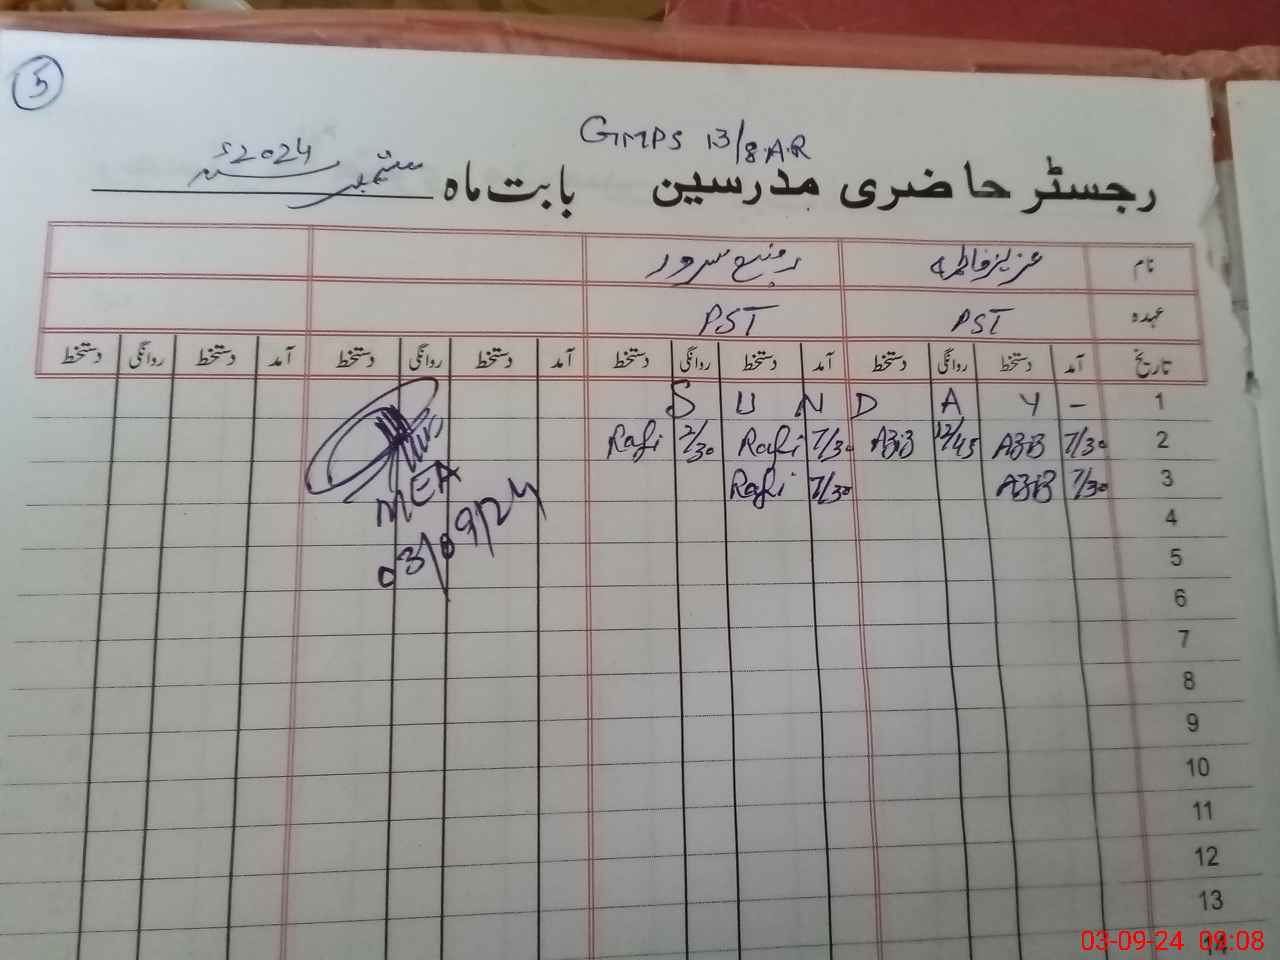 5
GMPS 13/8.A.R
رجسٹر حاضری مدرسین بابت ماہ ستمبر سنہ 2024ء
نام عزیز فاطمہ رفیع سرور
عہدہ PST PST
تاریخ آمد دستخط روانگی دستخط آمد دستخط روانگی دستخط آمد دستخط روانگی دستخط آمد دستخط روانگی دستخط
1 S U N D A Y -
2 7/30 AZB 12/45 AZB 7/30 Rafi 2/30 Rafi
3 7/30 AZB 7/30 Rafi
MEA
03/09/24
4
5
6
7
8
9
10
11
12
13
14
03-09-24 09:08